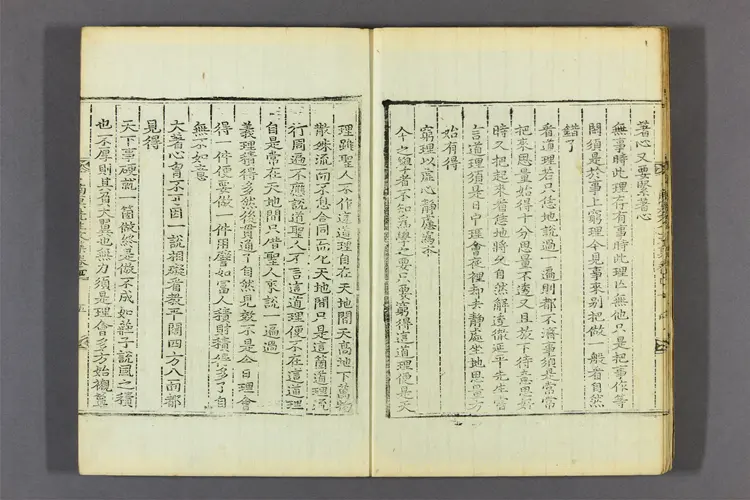 著心又要緊著心
無事時此理存有事時此理亡無他只是把事作等
閑須是於事上窮理今見事來别把做一般看自然
錯了
看道理若只恁地說過一遍則都不濟事須是常常
把來思量始得十分思量不透又且放下待意思好
時又把起來看恁地將久自然解透徹延平先生嘗
言道理須是日中理會夜裡却去靜處坐地思量方
始有得
窮理以虛心靜慮爲本
今之學者不知爲學之要只要窮得這道理便是天
理雖聖人不作這道理自在天地間天高地下萬物
散殊流而不息合同而化天地間只是這箇道理流
行周遍不應說道聖人不言這道理便不在這道理
自是常在天地間只借聖人來說一遍過
義理積得多然後貫通了自然見效不是今日理會
得一件便要做一件用譬如富人積財積得多了自
無不如意
大著心胷不可因一說相礙看敎平闊四方八面都
見得
天下事硬說一箇做終是做不成如莊子說風之積
也不厚則其負大翼也無力須是理會多方始襯簟